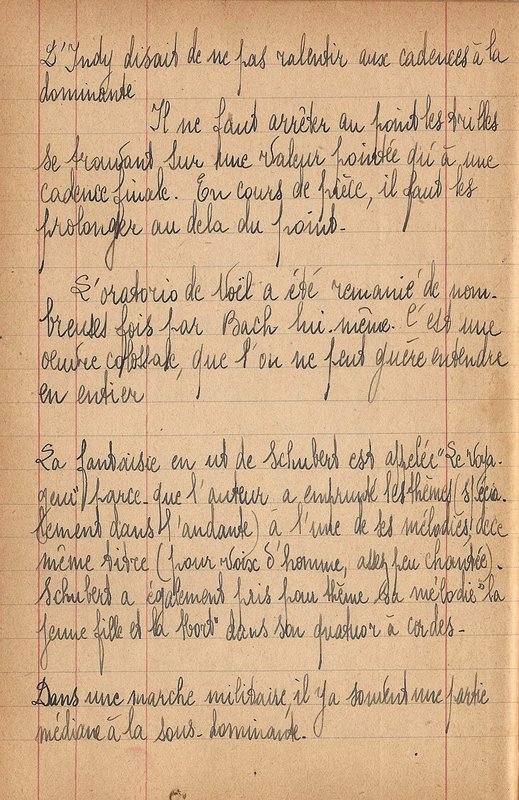 L'Indy disait de ne pas ralentir aux cadences à la
dominante
Il ne faut arrêter au point les trilles
se trouvant sur une valeur pointée qu'à une
cadence finale. En cours de pièce, il faut les
prolonger au dela du point.
L'oratorio de Noël a été remanié de nom-
breuses fois par Bach lui-même. C'est une
oeuvre colossale, que l'on ne peut guère entendre
en entier
La fantaisie en ut de Schubert est appelée "Le voya-
geur" parce-que l'auteur a emprunté les thèmes (spécia-
lement dans l'andante) à l'une de ses mélodies, de ce
même titre (pour voix d'homme, assez peu chantée).
Schubert a également pris pour thème sa mélodie "la
jeune fille et la Mort" dans son quatuor à cordes-
Dans une marche militaire, il y a souvent une partie
médiane à la sous-dominante.